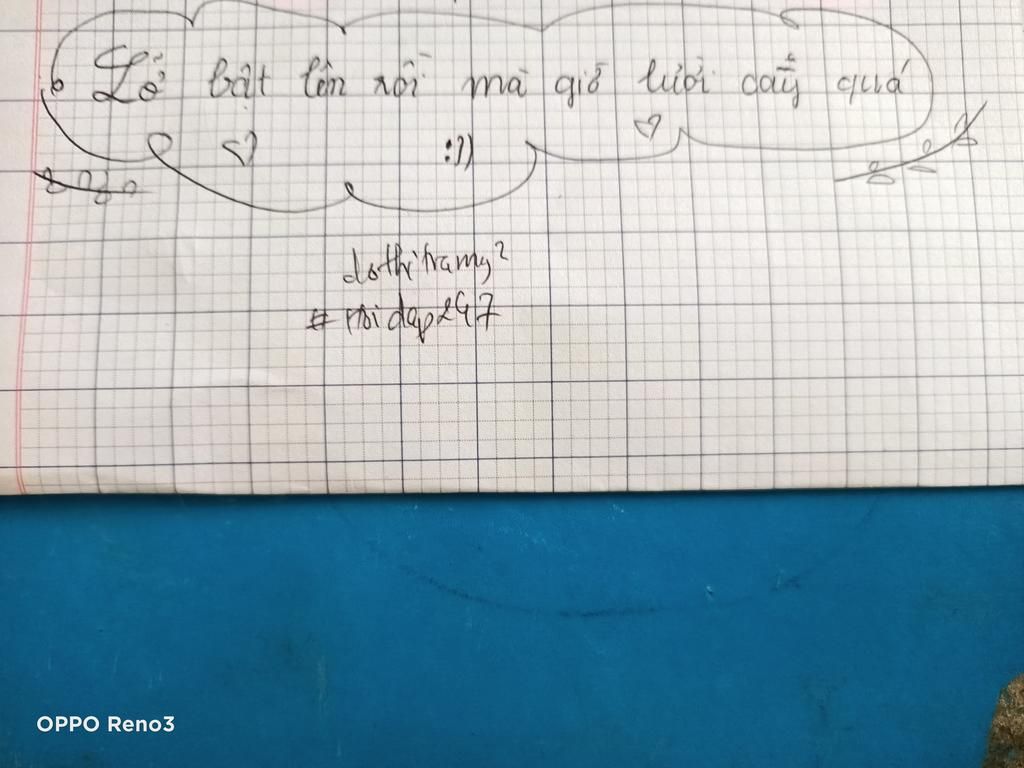 Lỡ bật lên rồi mà giờ lười dậy quá
:))
dothitramy2
#hoidap247
OPPO Reno3